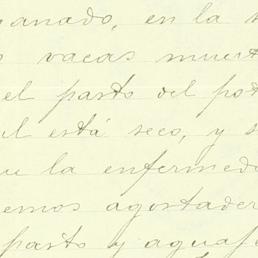 ganado, en la
vacas muert
el pasto del pot
está seco, y s
la enfermed
emos agostader
pasto y aguaje